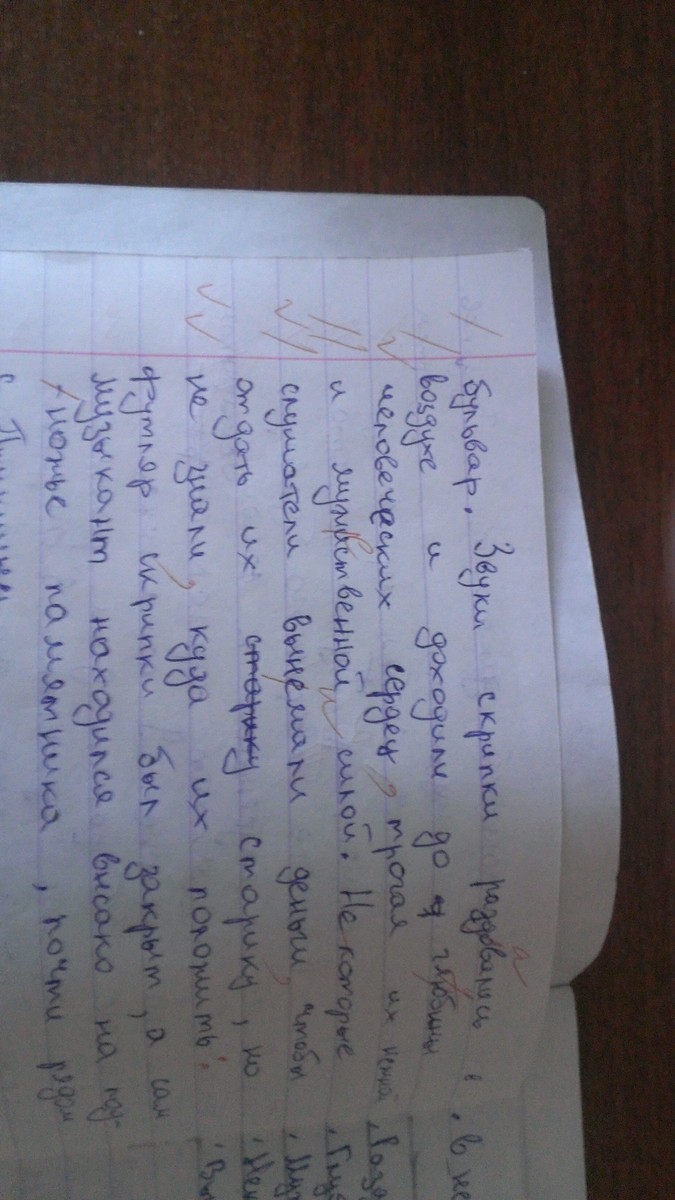 бульвар. Звуки скрипки раздовались в
воздухе и доходили до глюбины
человечаских сердец, трогая их немой
и мужественной силой. Не которые
слушатели вынемали деньги, чтобы
отдать их старику старику, но
не знали, куда их положить.
Футляр скрипки был закрыт, а сам
музыкант находился высако на под-
ножье памятника, почти рядом